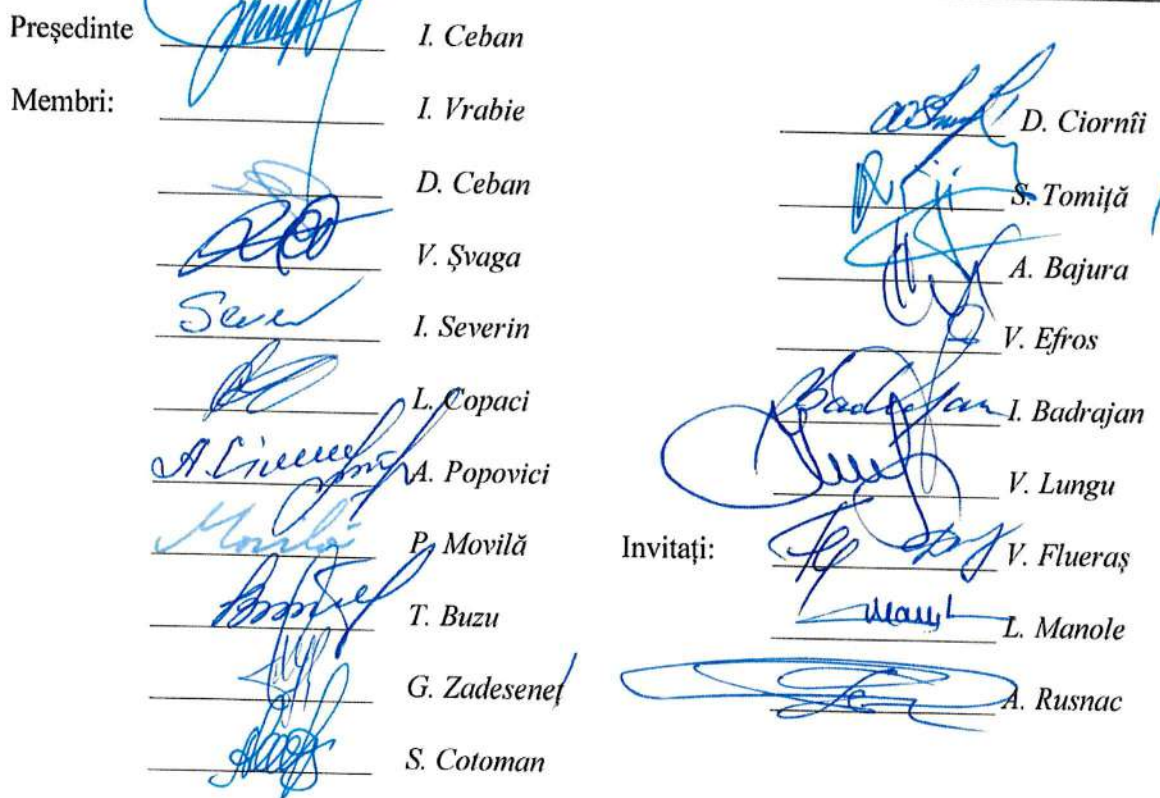 Președinte I. Ceban
Membri: I. Vrabie
D. Ceban
V. Șvaga
Sever I. Severin
L. Copaci
A. Popovici
Movilă P. Movilă
T. Buzu
G. Zadeseneț
S. Cotoman
D. Ciornîi
S. Tomiță
A. Bajura
V. Efros
Badrajan I. Badrajan
V. Lungu
Invitați: V. Flueraș
L. Manole
A. Rusnac